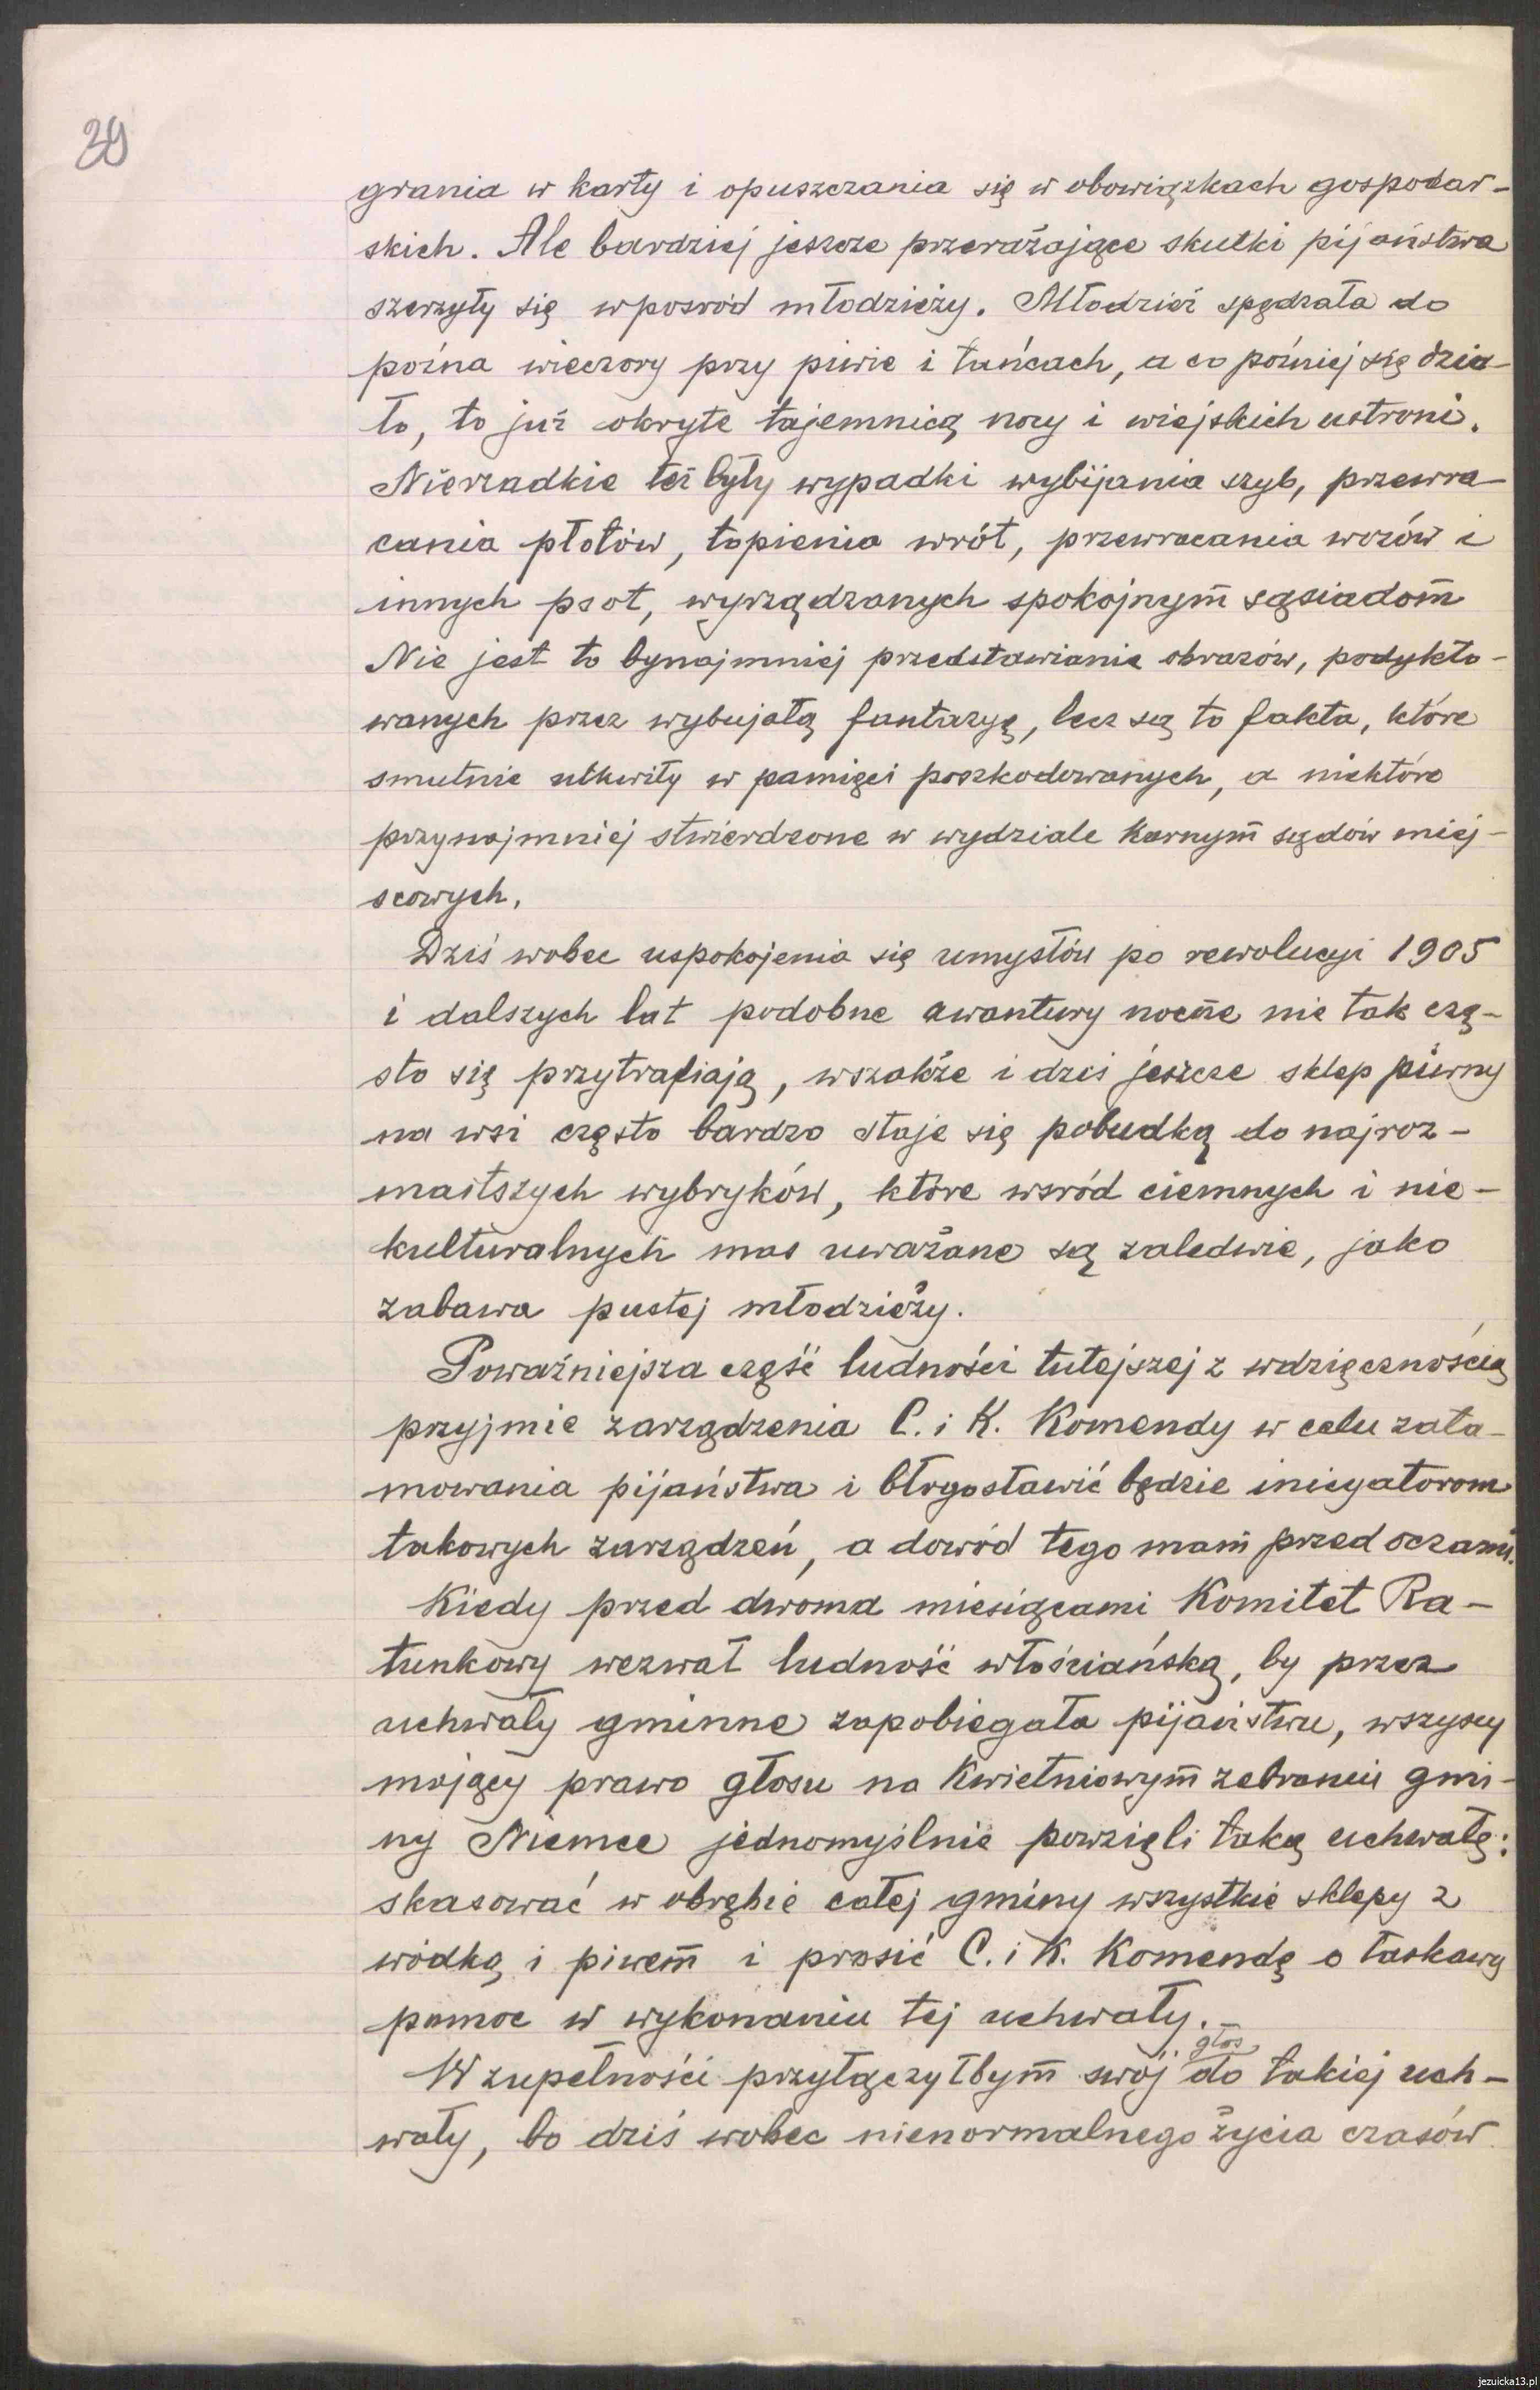 29
grania w karty i opuszczania się w obowiązkach gospodar-
skich. Ale bardziej jeszcze przerażające skutki pijaństwa
szerzyły się wpośród młodzieży. Młodzież spędzała do
późna wieczory przy piwie i tańcach, a co później się dzia-
ło, to już okryte tajemnicą nocy i wiejskich ustroni.
Nierzadkie też były wypadki wybijania szyb, przewra-
cania płotów, topienia wrót, przewracania wozów i
innych psot, wyrządzanych spokojnym̄ sąsiadom̄
Nie jest to bynajmniej przedstawianie obrazów, podykto-
wanych przez wybujałą fantazyę, lecz są to fakta, które
smutnie utkwiły w pamięci poszkodowanych, a niektóre
przynajmniej stwierdzone w wydziale karnym̄ sądów miej-
scowych.
Dziś wobec uspokojenia się umysłów po rewolucyi 1905
i dalszych lat podobne awantury nocne nie tak czę-
sto się przytrafiają, wszakże i dziś jeszcze sklep piwny
na wsi często bardzo staje się pobudką do najroz-
maitszych wybryków, które wsród ciemnych i nie-
kulturalnych mas uważane są zaledwie, jako
zabawa pustej młodzieży.
Poważniejsza część ludności tutejszej z wdzięcznością
przyjmie zarządzenia C. i K. Komendy w celu zata-
mowania pijaństwa i błogosławić będzie inicyatorom
takowych zarządzeń, a dowód tego mam̄ przed oczami.
Kiedy przed dwoma miesiącami Komitet Ra-
tunkowy wezwał ludność włościańską, by przez
uchwały gminne zapobiegała pijaństwu, wszyscy
mający prawo głosu na Kwietniowym̄ zebraniu gmi-
ny Niemce jednomyślnie powzięli taką uchwałę:
skasować w obrębie całej gminy wszystkie sklepy z
wódką i piwem̄ i prosić C. i K. Komendę o łaskawą
pomoc w wykonaniu tej uchwały.
głos
W zupełności przyłączyłbym̄ swój do takiej uch-
wały, bo dziś wobec nienormalnego życia czasów
jezuicka13.pl